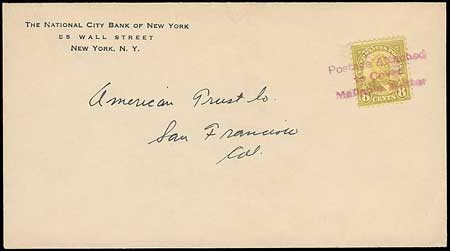 THE NATIONAL CITY BANK OF NEW YORK
55 WALL STREET
NEW YORK, N. Y.
Postage Attached
to Cover
Mailing Matter
8 CENTS 8
American Trust Co.
San Francisco
Cal.